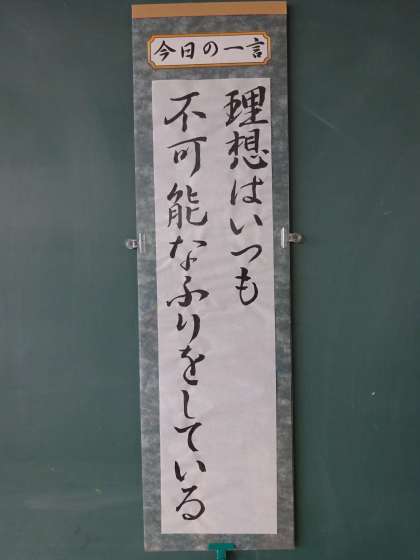 今日の一言
理想はいつも
不可能なふりをしている